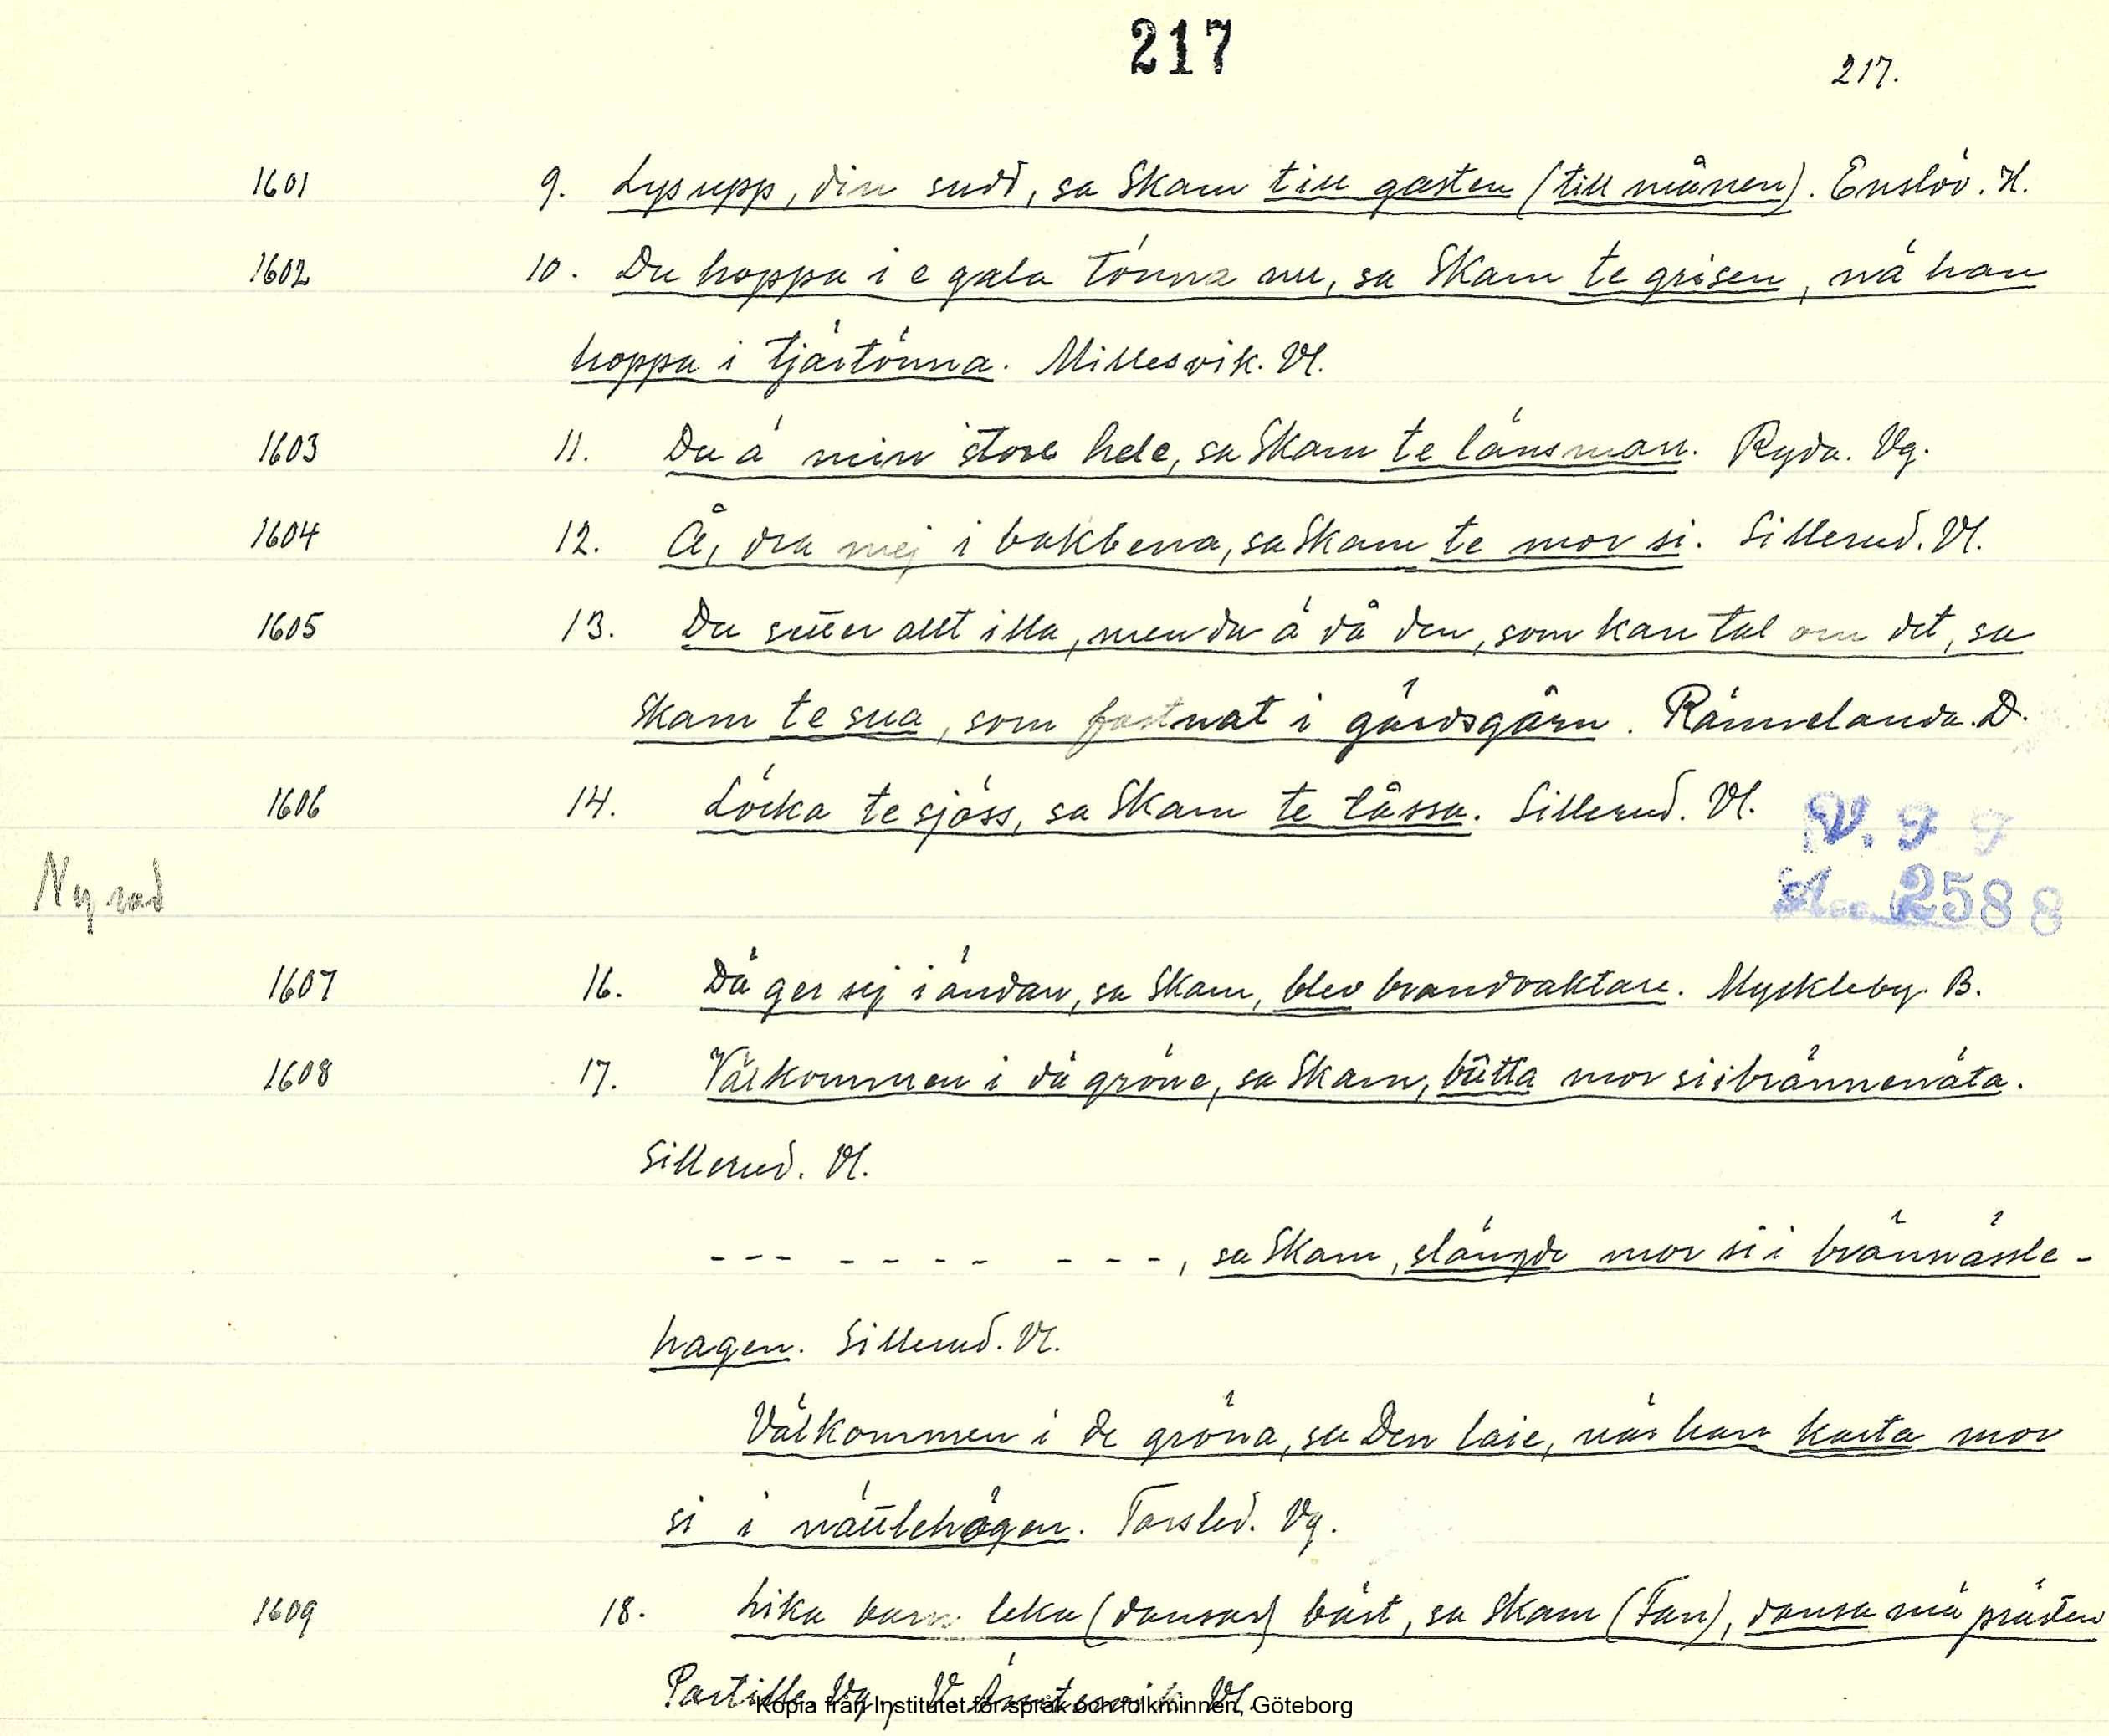 217
217.
1601 9. Lys upp, din sudd, sa Skam till gasten (till månen). Enslöv. H.
1602 10. Du hoppa i e gala tönna nu, sa Skam te grisen, nä han
hoppa i tjärtönna. Millesvik. Vl.
1603 11. Du ä min store hele, sa Skam te länsman. Ryda. Vg.
1604 12. Å, dra mej i bakbena, sa Skam te mor si. Sillerud. Vl.
1605 13. Du sitter allt illa, men du ä då den, som kan tal om det, sa
Skam te sua, som fastnat i gärdsgårn. Rännelanda. D.
1606 14. Löcka te sjöss, sa Skam te tåssa. Sillerud. Vl.
V. F F
Acc. 2588
Ny rad
1607 16. Dä ger sej i ändan, sa Skam, blev brandvaktare. Myckleby. B.
1608 17. Välkommen i dä gröne, sa Skam, bûtta mor si i brännenäta.
Sillerud. Vl.
--- ---- ---, sa Skam, slängde mor si i brännässle-
hagen. Sillerud. Vl.
Välkommen i de gröna, sa Den laie, när han kasta mor
si i nättlehögen. Tarsled. Vg.
1609 18. Lika barn leka (dansar) bäst, sa Skam (Fan), dansa mä prästen
Partille. Vg., V. Ämtervik. Vl.
Kopia från Institutet för språk och folkminnen, Göteborg